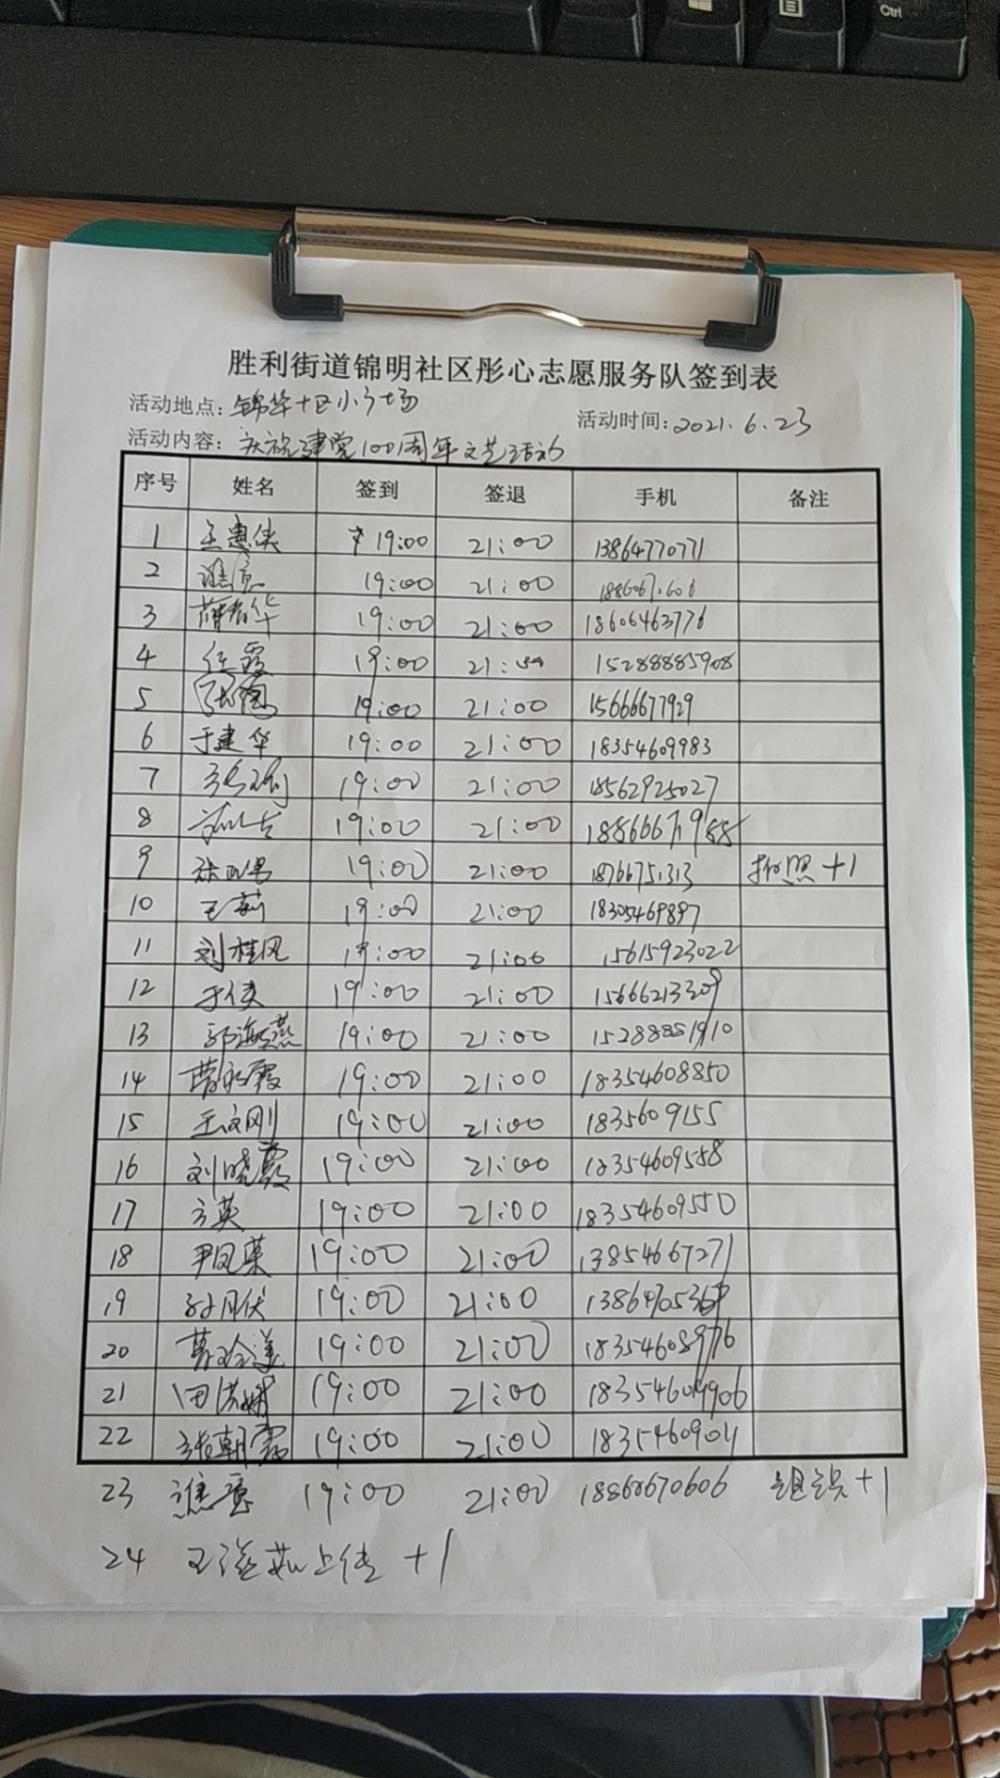 Ctrl
胜利街道锦明社区彤心志愿服务队签到表
活动地点: 锦华十区小广场 活动时间: 2021.6.23
活动内容: 庆祝建党100周年文艺活动
序号 姓名 签到 签退 手机 备注
1 王惠侠 19:00 21:00 13864770771
2 19:00 21:00
3 薛春华 19:00 21:00 18606463776
4 任霞 19:00 21:00 15288885908
5 19:00 21:00 15666677929
6 于建华 19:00 21:00 18354609983
7 19:00 21:00 18562925027
8 19:00 21:00
9 19:00 21:00 18766751313 拍照+1
10 王莉 19:00 21:00 18305469897
11 刘桂风 19:00 21:00 15615923022
12 于侠 19:00 21:00 15666213309
13 郭海燕 19:00 21:00 15288881910
14 曹永霞 19:00 21:00 18354608850
15 王文刚 19:00 21:00 1835609155
16 刘晓霞 19:00 21:00 18354609558
17 方英 19:00 21:00 18354609550
18 尹凤英 19:00 21:00 13854667271
19 19:00 21:00
20 19:00 21:00 18354608976
21 19:00 21:00 18354604906
22 张朝霞 19:00 21:00 1835460904
23 谯亮 19:00 21:00 18860670606 组织+1
24 上传+1